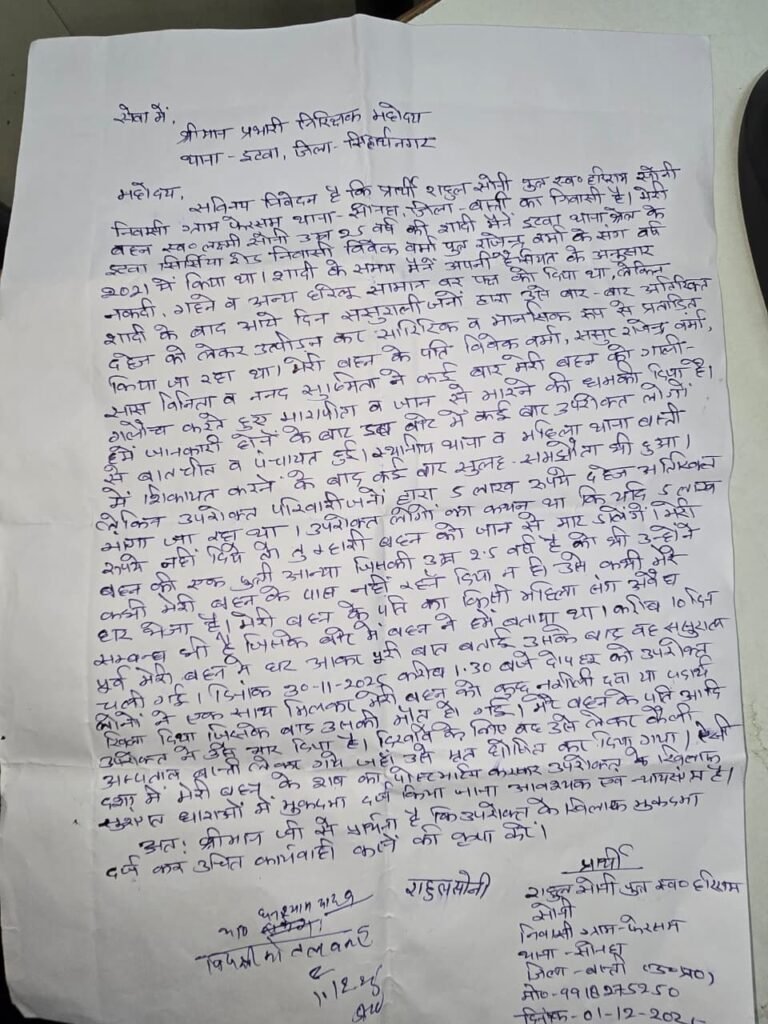 सेवा में,
श्रीमान प्रभारी निरिक्षक महोदय
थाना - इटवा, जिला - सिद्धार्थनगर
महोदय,
सविनय निवेदन है कि प्रार्थी राहुल सोनी पुत्र स्व० हरिराम सोनी
निवासी ग्राम फेरसम थाना - सोनहा, जिला - बस्ती का निवासी है। मेरी
बहन स्व० लक्ष्मी सोनी उम्र 25 वर्ष की शादी मैंने इटवा थाना क्षेत्र के
इटवा बिस्कोहर रोड निवासी विवेक वर्मा पुत्र राजेन्द्र वर्मा के संग वर्ष
2021 में किया था। शादी के समय मैंने अपनी हैसीयत के अनुसार
नकदी, गहने व अन्य घरेलू सामान वर पक्ष को दिया था, लेकिन
शादी के बाद आये दिन ससुराली जनों द्वारा उसे बार-बार अतिरिक्त
दहेज को लेकर उत्पीड़न कर सारिरिक व मानसिक रूप से प्रताड़ित
किया जा रहा था। मेरी बहन के पति विवेक वर्मा, ससुर राजेन्द्र वर्मा,
सास विनिता व ननद सुष्मिता ने कई बार मेरी बहन को गाली-
गलौच करते हुए मारापीटा व जान से मारने की धमकी दिया है।
हमें जानकारी होने के बाद इस बारे में कई बार उपरोक्त लोगों
से बातचीत व पंचायत हुई। स्थानीय थाना व महिला थाना बस्ती
में शिकायत करने के बाद कई बार सुलह-समझौता भी हुआ।
लेकिन उपरोक्त परिवारीजनों द्वारा 5 लाख रूपये दहेज अतिरिक्त
मांगा जा रहा था। उपरोक्त लोगों का कथन था कि यदि 5 लाख
रूपये नहीं दिये तो तुम्हारी बहन को जान से मार डालेंगे। मेरी
बहन की एक पुत्री आन्या जिसकी उम्र 2.5 वर्ष है को भी उन्होंने
कभी मेरी बहन के पास नहीं रहने दिया न ही उसे कभी मेरे
घर भेजा है। मेरी बहन के पति का किसी महिला संग अवैध
सम्बन्ध भी है जिसके बारे में बहन ने हमें बताया था। करीब 10 दिन
पूर्व मेरी बहन ने घर आकर पूरी बात बताई उसके बाद वह ससुराल
चली गई। दिनांक 30-11-2025 करीब 1:30 बजे दोपहर को उपरोक्त
लोगों ने एक साथ मिलकर मेरी बहन को कुछ नशीली दवा या पदार्थ
खिला दिया जिसके बाद उसकी मौत हो गई। मेरे बहन के पति आदि
उपरोक्त ने उसे मार दिया है। दिखावे के लिए वह उसे लेकर कैली
अस्पताल बस्ती लेकर गये जहां उसे मृत घोषित कर दिया गया। ऐसी
दशा में मेरी बहन के शव का पोस्टमार्टम करवाकर उपरोक्त के खिलाफ
सुसंगत धाराओं में मुकदमा दर्ज किया जाना आवश्यक एवं न्यायसंगत है।
अतः श्रीमान जी से प्रार्थना है कि उपरोक्त के खिलाफ मुकदमा
दर्ज कर उचित कार्यवाही करने की कृपा करें।
प्रार्थी
राहुल सोनी
राहुल सोनी पुत्र स्व० हरिराम
सोनी
निवासी ग्राम - फेरसम
थाना - सोनहा
जिला - बस्ती (उ०प्र०)
मो०- 9918275250
दिनांक - 01-12-202
घनश्याम यादव